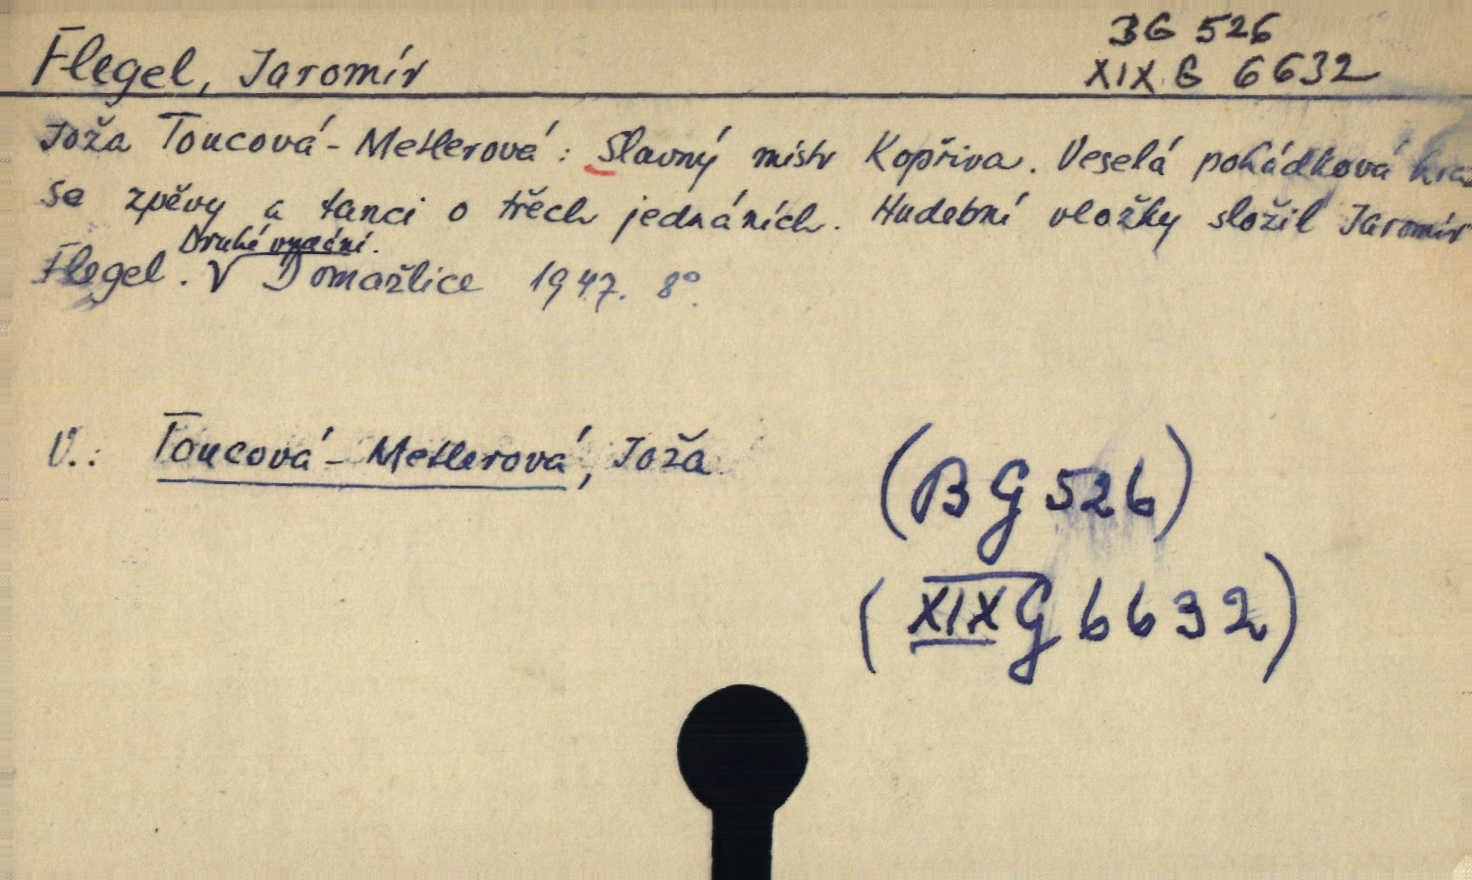 Flegel, Jaromír
BG 526
XIX G 6632
Joža Toucová-Metlerová: Slavný mistr Kopřiva. Veselá pohádková hra
se zpěvy a tanci o třech jednáních. Hudební vložky složil Jaromír
Druhé vydání.
Flegel. V Domažlice 1947. 8°.
V.: Toucová-Metlerová, Joža
(BG 526)
(XIX G 6632)